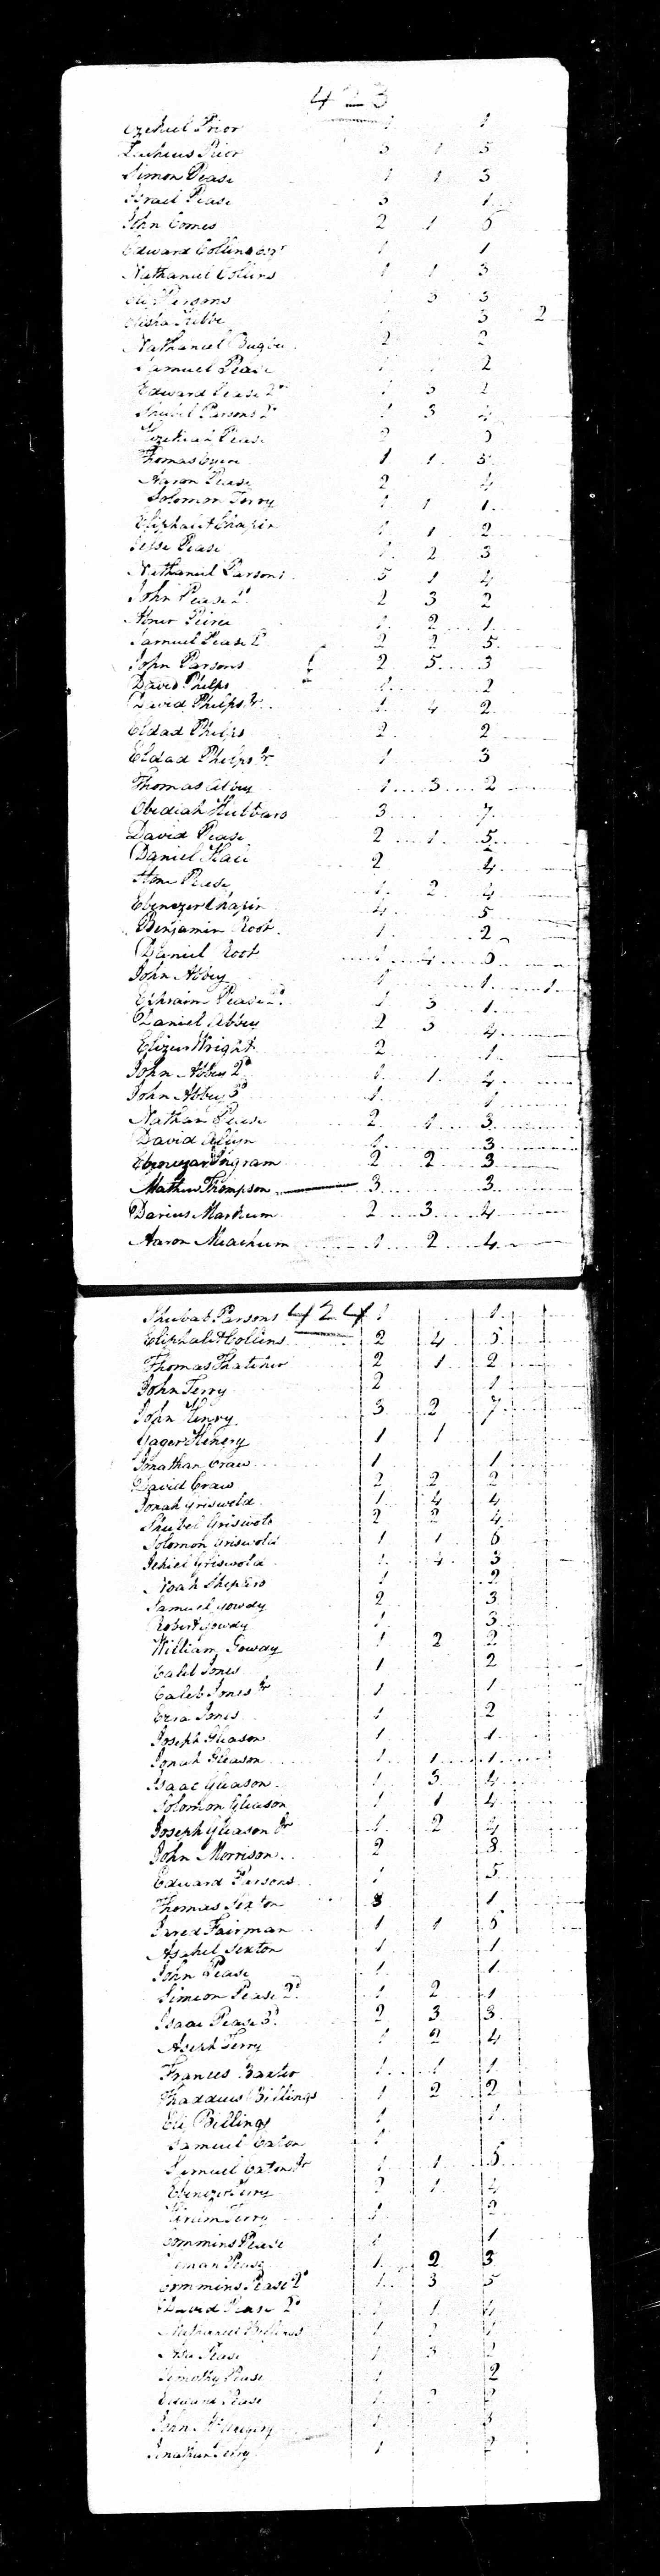 423
Ezekiel Prior 1 1
Prior 3 1 5
Simon Pease 1 1 3
Israel Pease 3 1
John Comes 2 1 6
Edward Collins Esqr 1 1
Nathaniel Collins 1 1 3
Parsons 3 3
Elisha 3 2
Nathaniel 2 2
Samuel Pease 2
Edward Pease 2d 1 3 2
Shubel Parsons 2d 1 3 4
Hezekiah Pease 2
Thomas 1 1 5
Aaron Pease 2 4
Solomon Terry 1 1 1
Eliphalet Chapin 1 1 2
Jesse Pease 1 2 3
Nathaniel Parsons 5 1 4
John Pease 2d 2 3 2
Abner 1 2 1
Samuel Pease 2d 2 2 5
John Parsons 2 5 3
David Phelps 1 2
David Phelps Jr 1 4 2
Eldad Phelps 2 2
Eldad Phelps Jr 1 3
Thomas Abbey 1 3 2
Obediah 3 7
David Pease 2 1 5
Daniel Hall 2 4
Pease 1 2 4
Ebenezer Chapin 4 5
Benjamin Root 1 2
Daniel Root 1 4 3
John Abbey 1 1 1
Ephraim Pease 2d 1 3 1
Daniel Abbey 2 3 4
Elizur Wright 2 1
John Abbey 2d 1 1 4
John Abbey 3d 1 1
Nathan Pease 2 1 3
David 1 3
Ebenezar Ingram 2 2 3
Mathew Thompson 3 3
Darius Markum 2 3 4
Aaron Meachum 1 2 4
424
Shubal Parsons 1 1
Eliphalet Collins 2 4 5
Thomas Thatcher 2 1 2
John Terry 2 1
John Henry 3 2 7
Yager Henery 1 1
Jonathan Craw 1 1
David Craw 2 2 2
Jonah Griswold 1 4 4
Shubel Griswold 2 2 4
Solomon Griswold 1 1 6
Jehiel Griswold 1 4 3
Noah 1 2
Samuel Gowdy 2 3
Robert Gowdy 1 3
William Gowdy 1 2 2
Caleb Jones 1 2
Caleb Jones Jr 1 1
Ezra Jones 1 2
Joseph Gleason 1 1
Jonah Gleason 1 1 1
Isaac Gleason 1 3 4
Solomon Gleason 1 1 4
Joseph Gleason Jr 1 2 4
John Morrison 2 3
Edward Parsons 1 5
Thomas Sexton 3 1
Jared Fairman 1 1 5
Asahel Sexton 1 1
John Pease 1 1
Simeon Pease 2d 1 2 1
Isaac Pease 3d 2 3 3
Terry 1 2 4
Frances Baxter 1 1 1
Thaddeus Billings 1 2 2
Eli Billings 1 1
Samuel Eaton 1
Samuel Eaton Jr 1 1 5
Ebenezer Terry 2 1 4
Terry 1 2
Commins Pease 1 1
Pease 1 2 3
Commins Pease 2d 1 3 5
David Pease 2d 1 1 4
Nathaniel Billings 1
Asa Pease 1 3 2
Timothy Pease 1 2
Edward Pease 1 2 2
John 1 3
Jonathan Terry 1 2